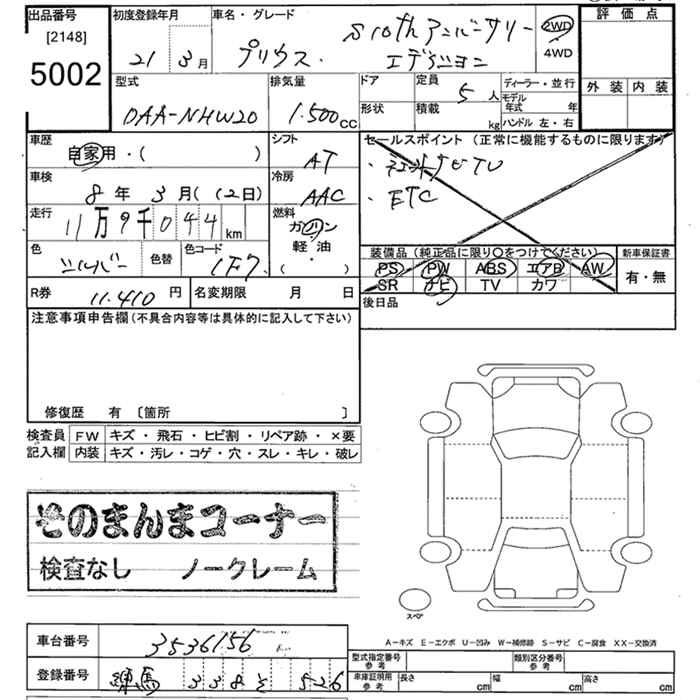 出品番号 [2148] 5002
初度登録年月 21年 3月
車名・グレード プリウス S10thアニバーサリーエディション
2WD
4WD
評価点
外装 内装
型式 DAA-NHW20
排気量 1.500cc
ドア
形状
定員 5人
積載 kg
ディーラー・並行
モデル年式 年
ハンドル 左・右
車歴 自家用・( )
シフト AT
セールスポイント (正常に機能するものに限ります)
・ETC
車検 8年 3月(12日)
冷房 AAC
走行 11万9千044km
燃料 ガソリン
軽油
・
( )
色 シルバー 色替
色コード 1F7
装備品 (純正品に限り〇をつけてください)
PS PW ABS エアB AW
SR ナビ TV カワ
新車保証書
有・無
R券 11.410円
名変期限 月 日
後日品
注意事項申告欄 (不具合内容等は具体的に記入して下さい)
修復歴 有 〔箇所 〕
検査員 FW キズ・飛石・ヒビ割・リペア跡・×要
記入欄 内装 キズ・汚レ・コゲ・穴・スレ・キレ・破レ
そのまんまコーナー
検査なし ノークレーム
スペア
A-キズ E-エクボ U-凹み W-補修跡 S-サビ C-腐食 XX-交換済
車台番号 3536156
登録番号 練馬 338 526
型式指定番号 参考
類別区分番号 参考
車庫証明用 参考 長さ cm 幅 cm 高さ cm